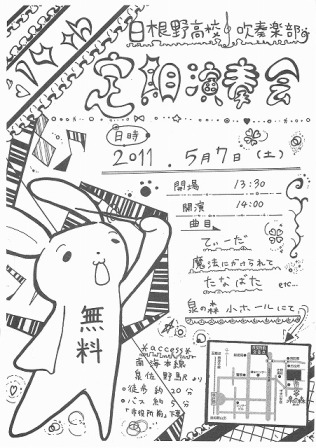 日根野高校 吹奏楽部
定期演奏会
日時
2011.5月7日（土）
開場 13:30
開演 14:00
曲目
てぃーだ
魔法にかけられて
たなばた etc…
泉の森 小ホールにて
無料
*access*
南海本線
泉佐野駅より
・徒歩 約20分
・バス 約 分
「市役所前」下車